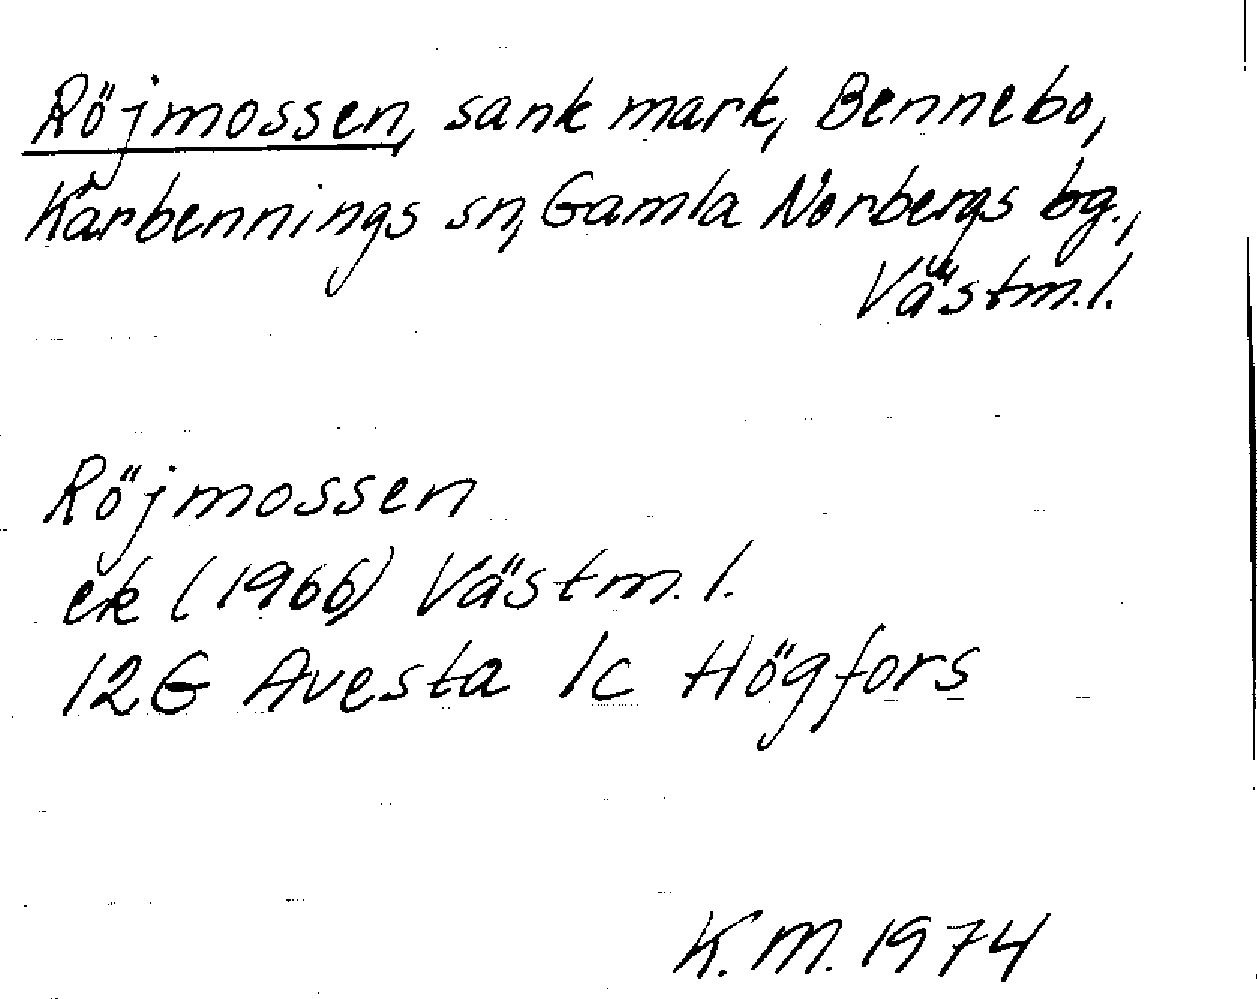 Röjmossen, sank mark, Bennebo,
Karbennings sn, Gamla Norbergs bg.,
Västm.l.
Röjmossen
ek (1966) Västm.l.
12G Avesta 1c Högfors
K.M. 1974